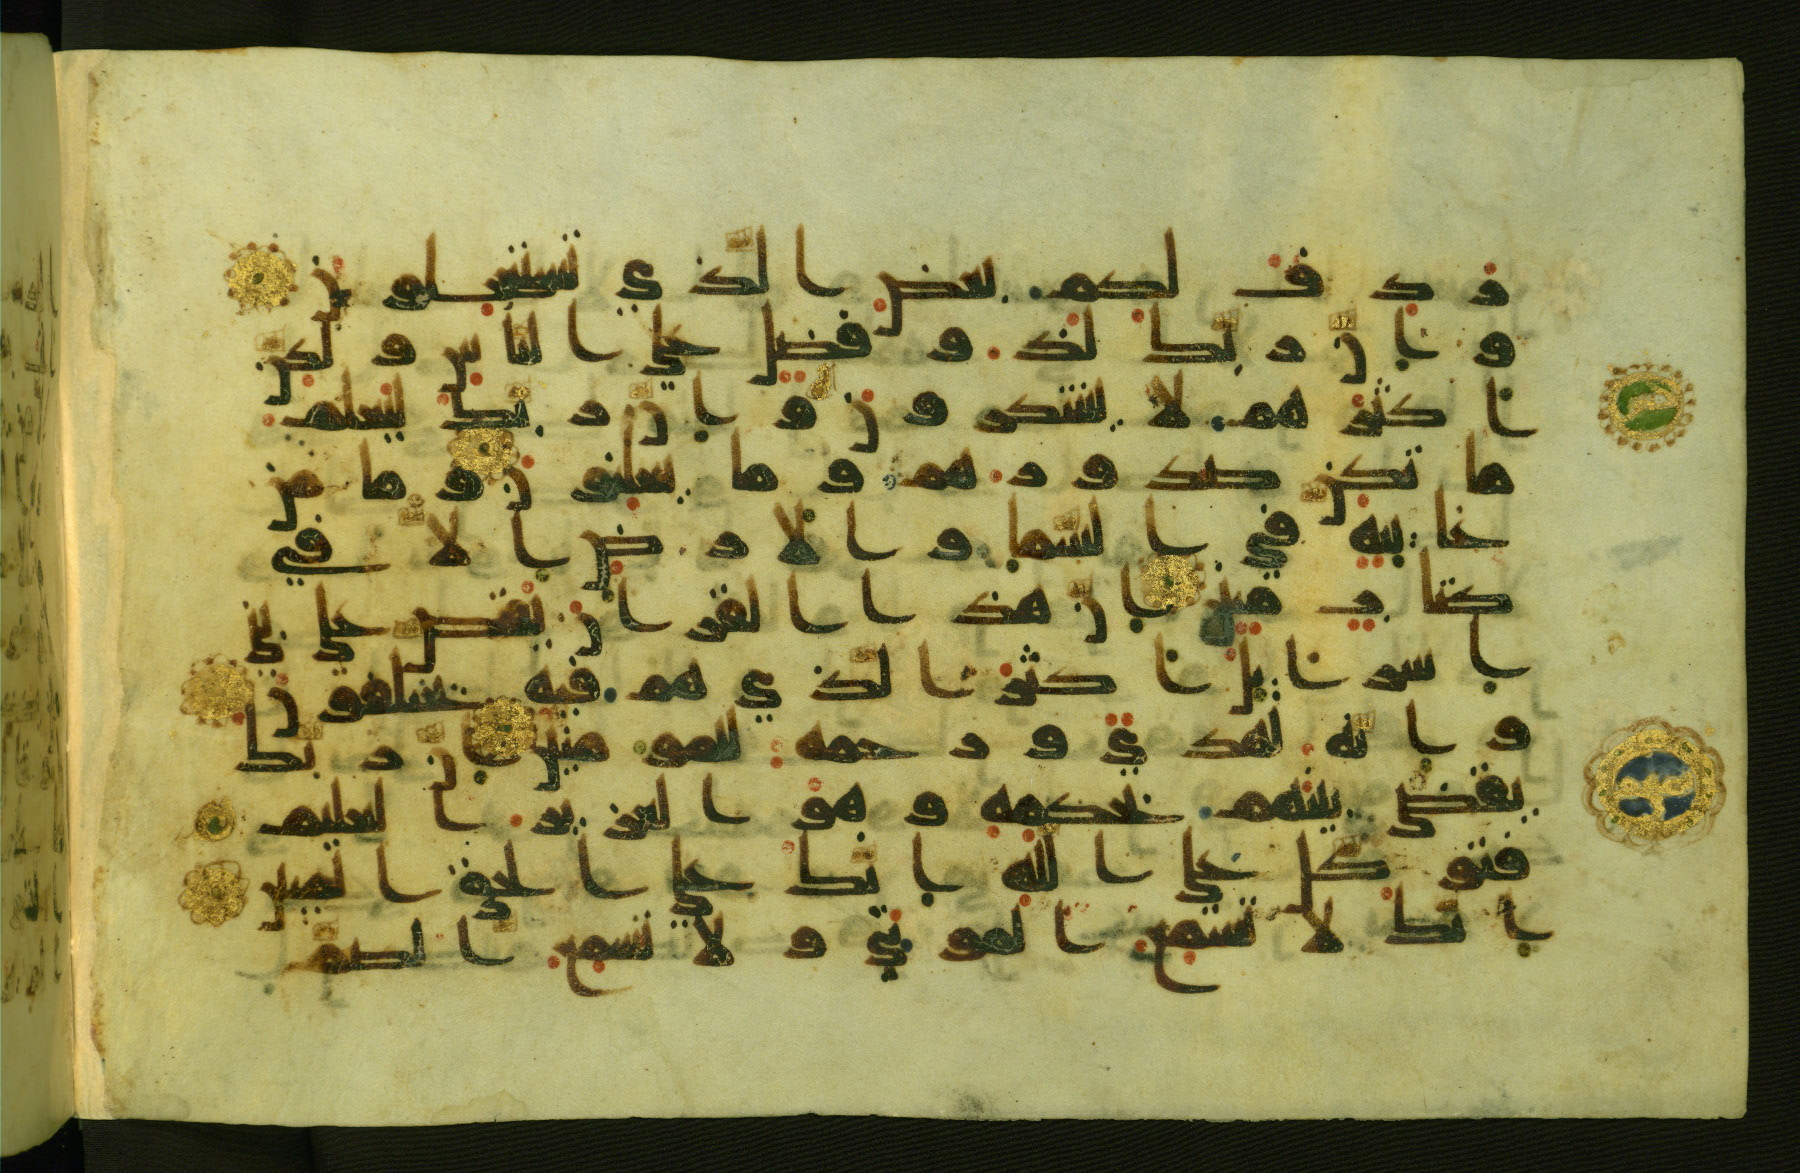 ردف لكم بعض الذي تستعجلون
وان ربك لذو فضل على الناس ولكن
اكثرهم لا يشكرون وان ربك ليعلم
ما تكن صدورهم وما يعلنون وما من
غايبة في السما والارض الا في
كتاب مبين ان هذا القران يقص على بني
اسرايل اكثر الذي هم فيه يختلفون
وانه لهدي ورحمة للمومنين ان ربك
يقضي بينهم بحكمه وهو العزيز العليم
فتوكل على الله انك على الحق المبين
انك لا تسمع الموتي ولا تسمع الصم